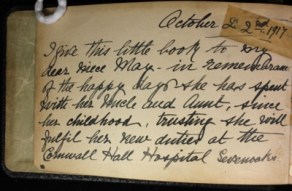 October 22nd 1917
I give this little book to my
dear niece May - in remembrance
of the happy days she has spent
with her Uncle and Aunt, since
her childhood, trusting she will
fulfil her new duties at the
Cornwall Hall Hospital Sevenoaks